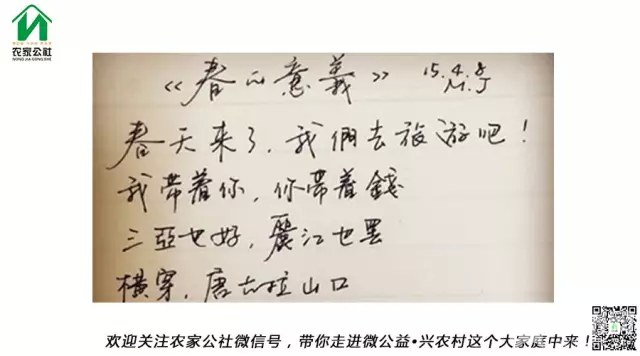 农家公社
NONG JIA GONG SHE
《春的意義》 15.4.8
M.J
春天来了，我們去旅游吧！
我带着你，你带着錢
三亞也好，麗江也罢
横穿，唐古拉山口
欢迎关注农家公社微信号，带你走进微公益•兴农村这个大家庭中来！